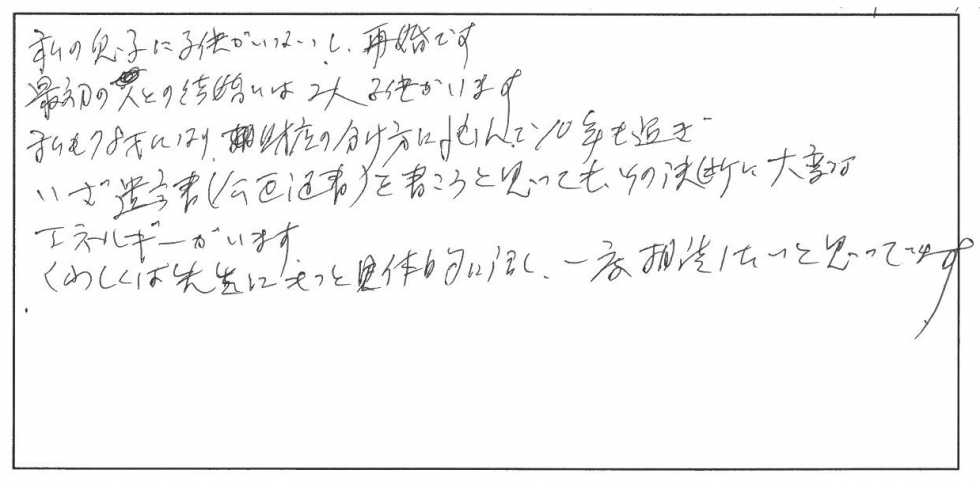 私の息子に子供がいないし、再婚です
最初の人との結婚には2人子供がいます
私も78才になり、財産の分け方になやんで10年も過ぎ
いざ遺言書(公正証書)を書こうと思っても、その決断に大変な
エネルギーがいます
くわしくは先生にもっと具体的に話し、一度相談したいと思ってです